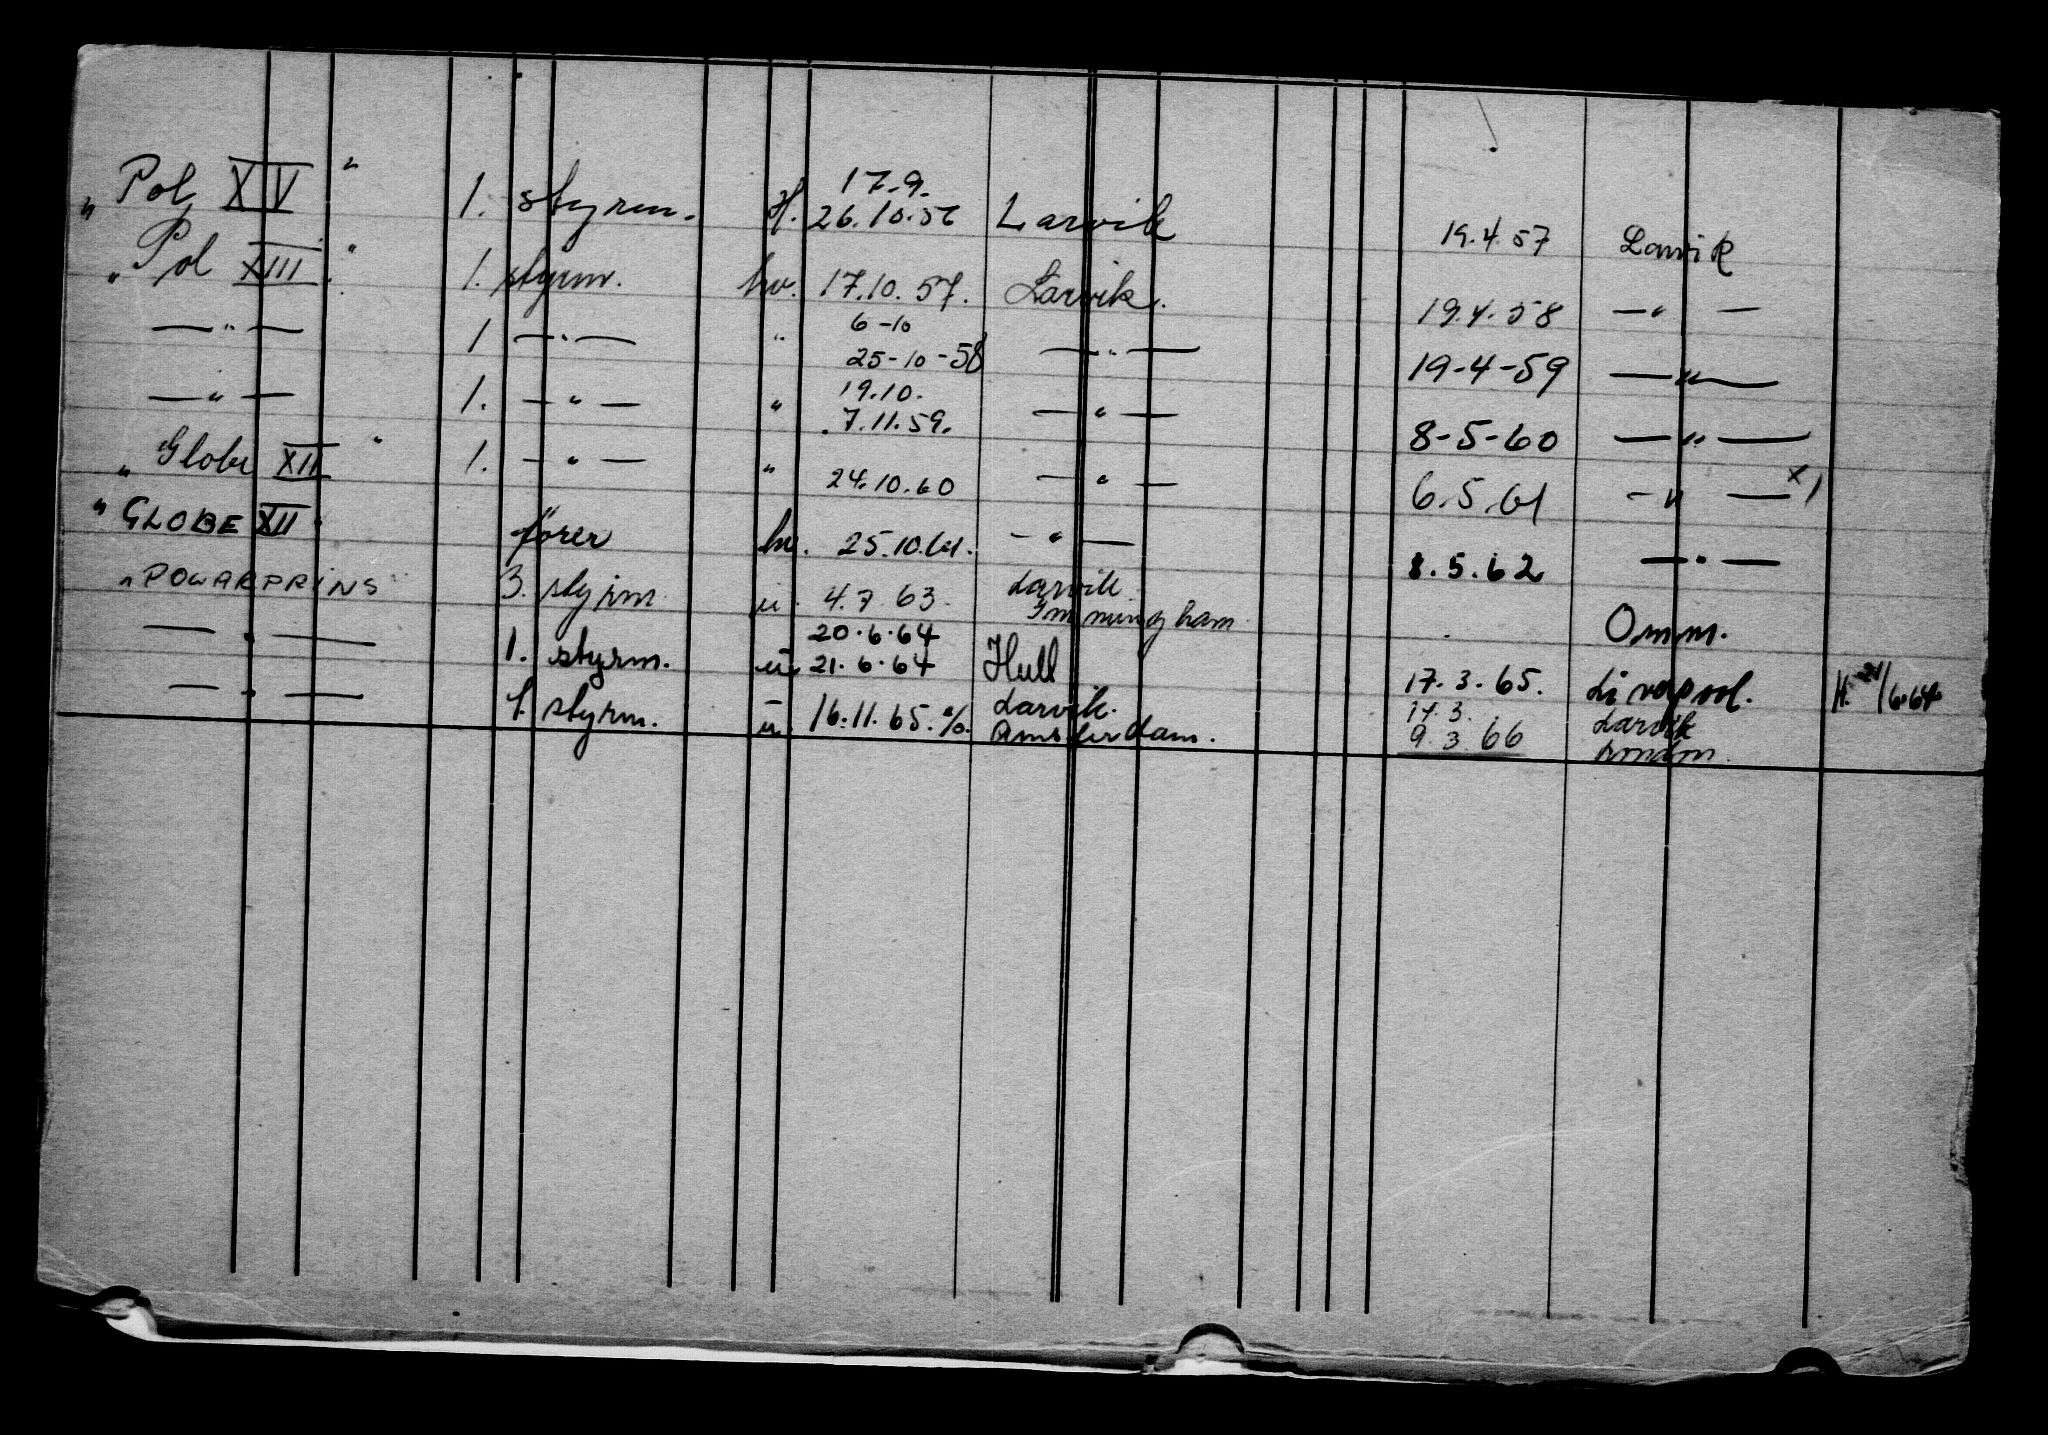 „ Pol XIV " 1. styrm. H. 17.9. 26.10.56 Larvik 19.4.57 Larvik
„ Pol XIII " 1. styrm. hv. 17.10.57. Larvik. 19.4.58 — " —
— " — 1 — " — " 6-10 25-10-58 — " — 19-4-59 — " —
— " — 1. — " — " 19.10. 7.11.59. — " — 8-5-60 — " —
„ Globe XII " 1. — " — " 24.10.60 — " — 6.5.61 — " — x)
" GLOBE XII " fører hv. 25.10.61. — " — 8.5.62 — " —
" POLARPRINS " 3. styrm. u. 4.7.63. Larvik. Immingham Omm.
— " — 1. styrm. u. 20.6.64 21.6.64 Hull 17.3.65. Liverpool. H. 21/6.64
— " — 1. styrm. u. 16.11.65. Larvik. Amsterdam. 17.3. 9.3.66 Larvik London.